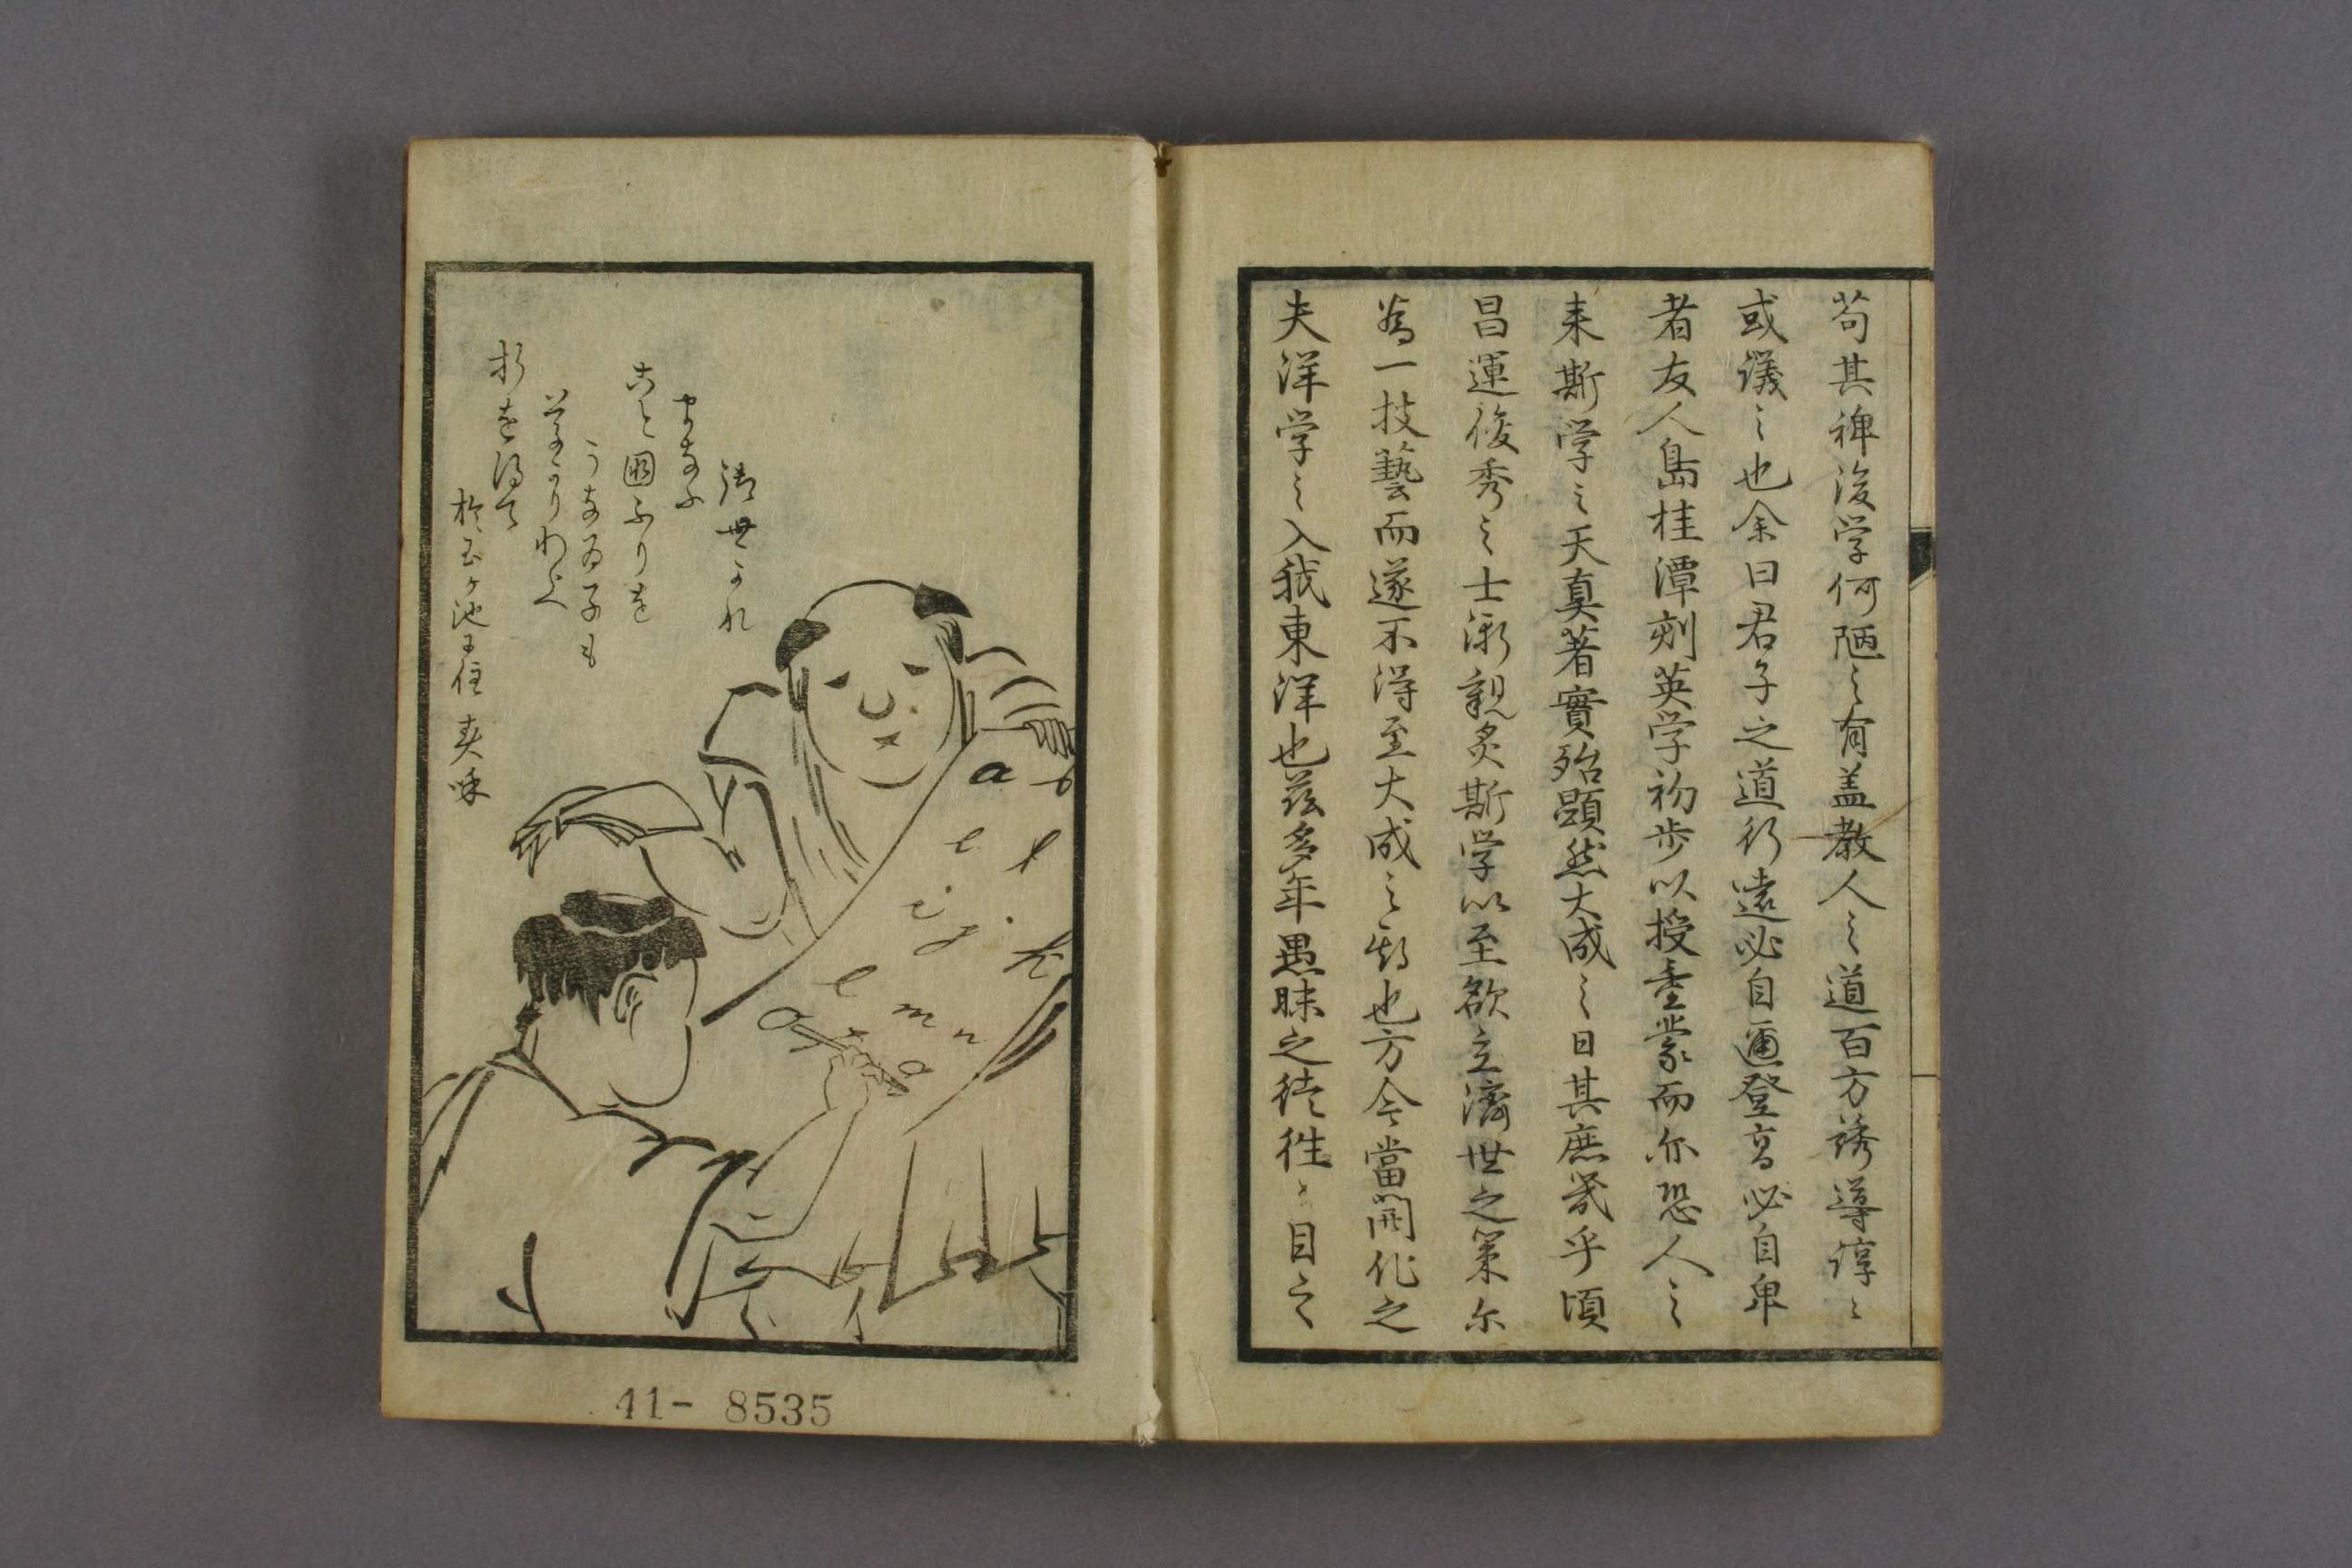 於玉ヶ池に住
折を得て
草かりわらへ
うなゐ子も
こと國ふりを
まなふ
御世かれ
a b
e f
i g k
l m n
o
41- 8535
夫洋学之入我東洋也茲多年愚昧之徒往々目之
為一技藝而遂不得至大成之期也方今當開化之
昌運俊秀之士漸親炙斯学以至欲立濟世之策尓
来斯学之天真著實殆顕然大成之日其庶幾乎頃
者友人島桂潭刻英学初歩以授童蒙而尓恐人之
或議之也余曰君子之道行遠必自邇登高必自卑
苟其裨後学何陋之有盖教人之道百方誘導諄々